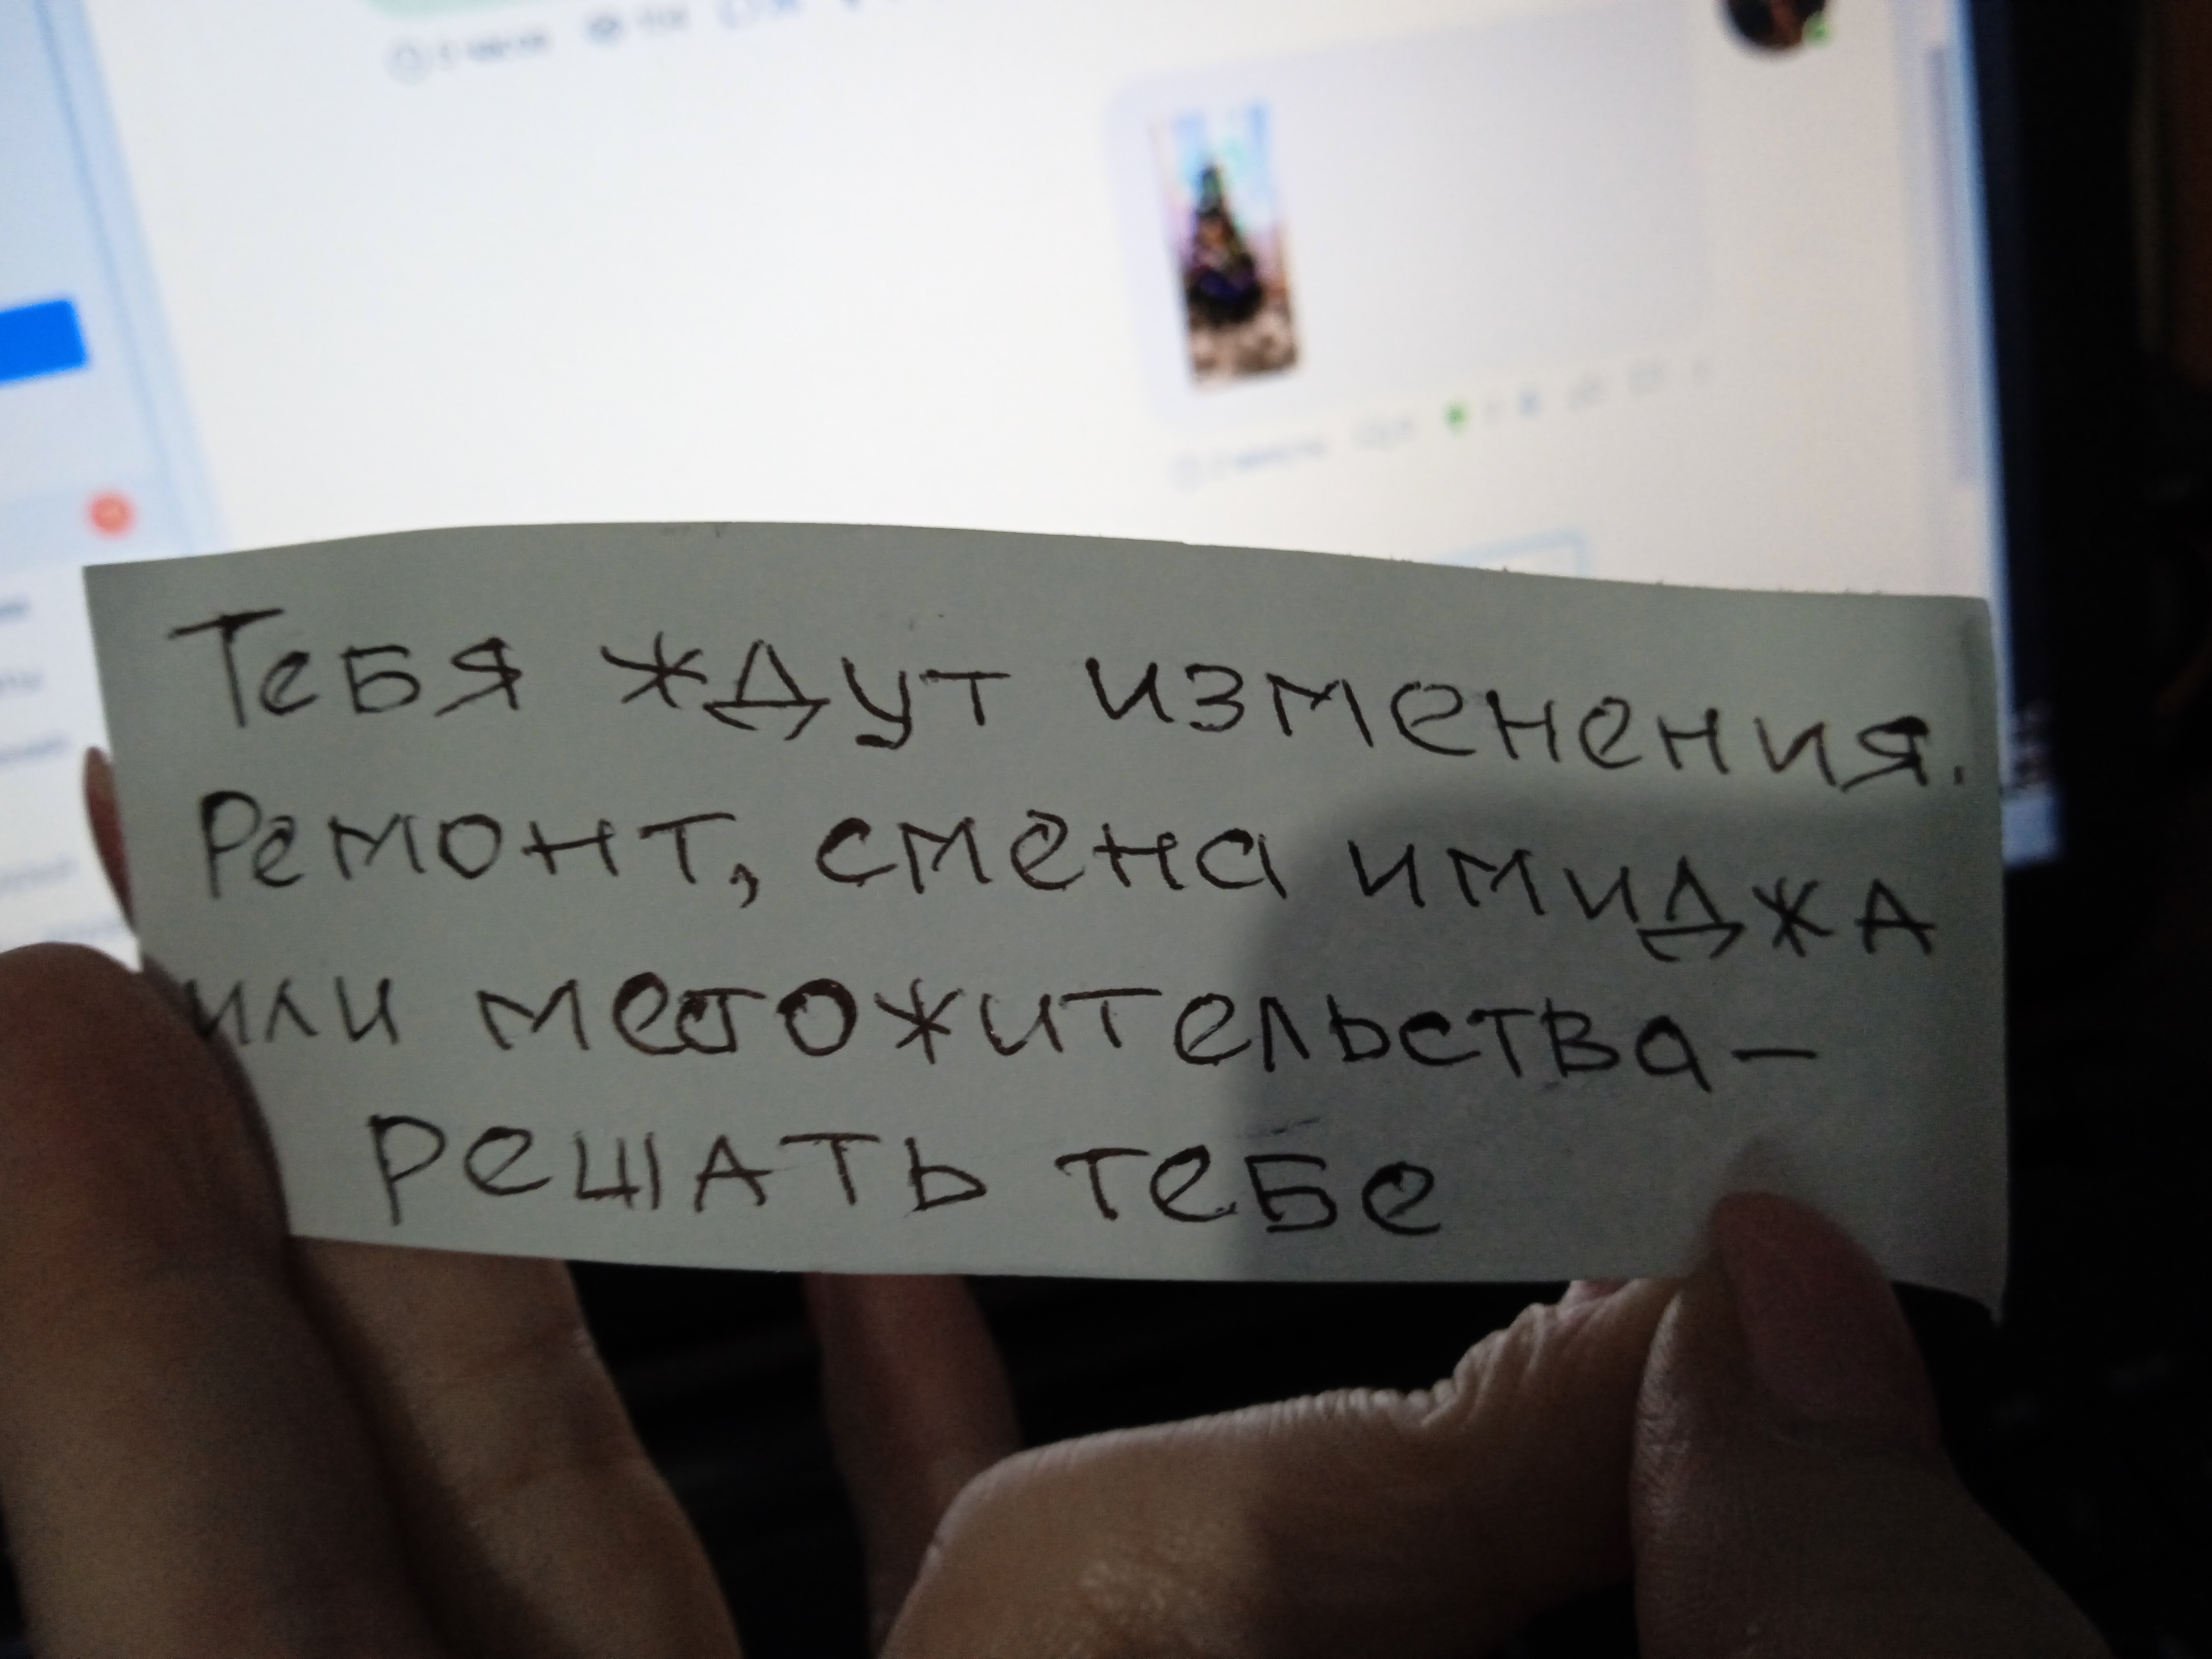 Тебя ждут изменения.
Ремонт, смена имиджа
или местожительства –
решать тебе